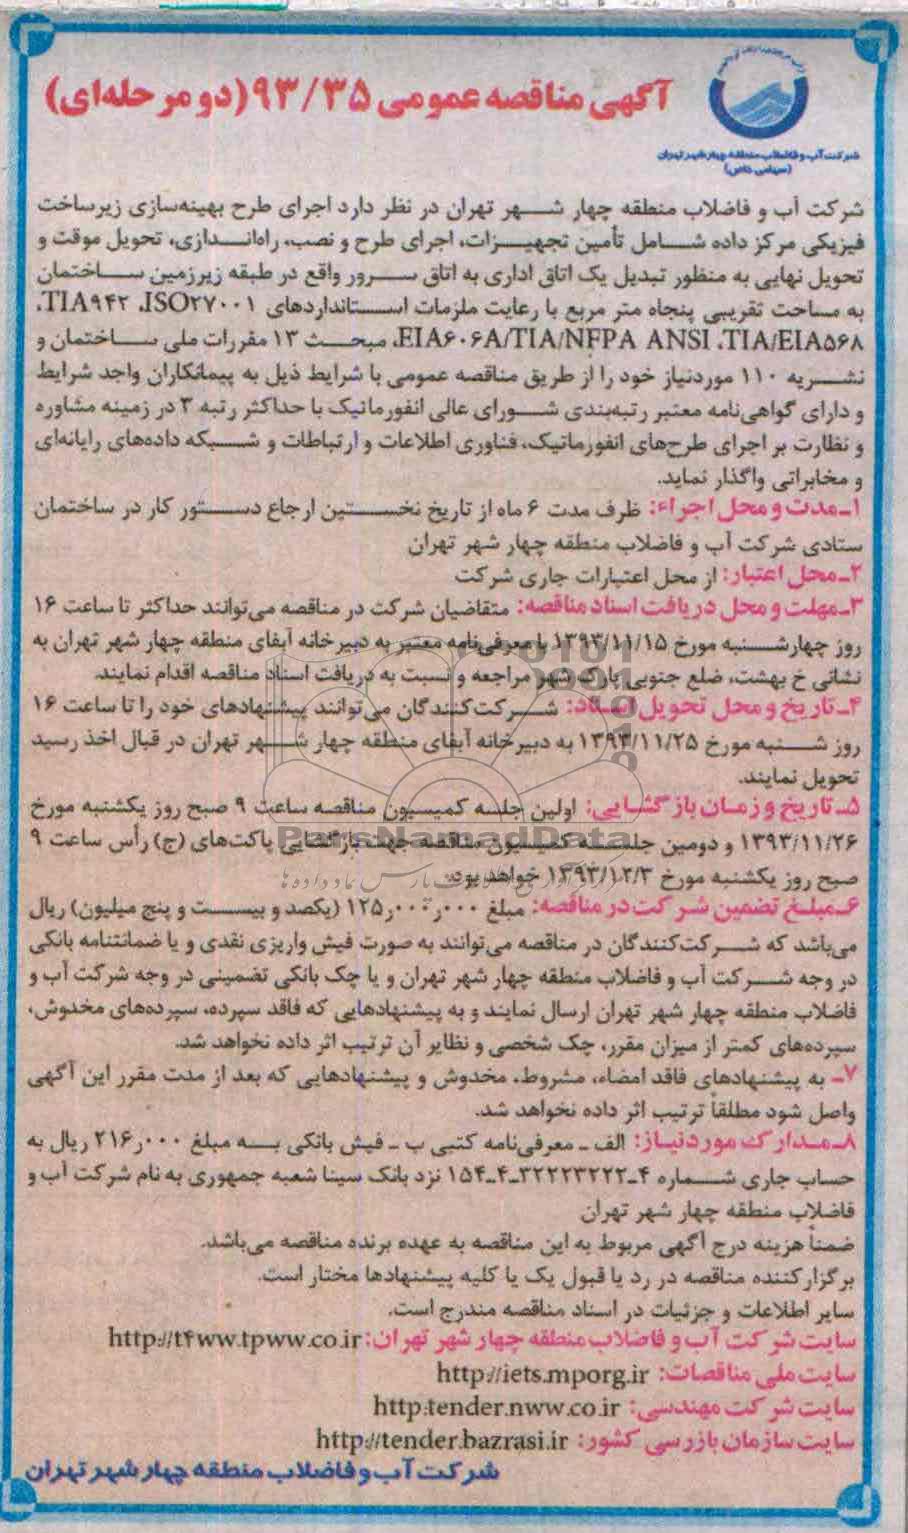 آگهی مناقصه عمومی ۹۳/۳۵ (دو مرحله‌ای)
شرکت آب و فاضلاب منطقه چهار شهر تهران
(سهامی خاص)
شرکت آب و فاضلاب منطقه چهار شهر تهران در نظر دارد اجرای طرح بهینه‌سازی زیرساخت
فیزیکی مرکز داده شامل تأمین تجهیزات، اجرای طرح و نصب، راه‌اندازی، تحویل موقت و
تحویل نهایی به منظور تبدیل یک اتاق اداری به اتاق سرور واقع در طبقه زیرزمین ساختمان
به مساحت تقریبی پنجاه متر مربع با رعایت ملزمات استانداردهای TIA۹۴۲ ،ISO۲۷۰۰۱،
EIA۶۰۶A/TIA/NFPA ANSI ،TIA/EIA۵۶۸، مبحث ۱۳ مقررات ملی ساختمان و
نشریه ۱۱۰ موردنیاز خود را از طریق مناقصه عمومی با شرایط ذیل به پیمانکاران واجد شرایط
و دارای گواهی‌نامه معتبر رتبه‌بندی شورای عالی انفورماتیک با حداکثر رتبه ۳ در زمینه مشاوره
و نظارت بر اجرای طرح‌های انفورماتیک، فناوری اطلاعات و ارتباطات و شبکه داده‌های رایانه‌ای
و مخابراتی واگذار نماید.
۱ـ مدت و محل اجراء: ظرف مدت ۶ ماه از تاریخ نخستین ارجاع دستور کار در ساختمان
ستادی شرکت آب و فاضلاب منطقه چهار شهر تهران
۲ـ محل اعتبار: از محل اعتبارات جاری شرکت
۳ـ مهلت و محل دریافت اسناد مناقصه: متقاضیان شرکت در مناقصه می‌توانند حداکثر تا ساعت ۱۶
روز چهارشنبه مورخ ۱۳۹۳/۱۱/۱۵ با معرفی‌نامه معتبر به دبیرخانه آبفای منطقه چهار شهر تهران به
نشانی خ بهشت، ضلع جنوبی پارک شهر مراجعه و نسبت به دریافت اسناد مناقصه اقدام نمایند.
۴ـ تاریخ و محل تحویل اسناد: شرکت‌کنندگان می‌توانند پیشنهادهای خود را تا ساعت ۱۶
روز شنبه مورخ ۱۳۹۳/۱۱/۲۵ به دبیرخانه آبفای منطقه چهار شهر تهران در قبال اخذ رسید
تحویل نمایند.
۵ـ تاریخ و زمان بازگشایی: اولین جلسه کمیسیون مناقصه ساعت ۹ صبح روز یکشنبه مورخ
۱۳۹۳/۱۱/۲۶ و دومین جلسه کمیسیون مناقصه جهت بازگشایی پاکت‌های (ج) رأس ساعت ۹
صبح روز یکشنبه مورخ ۱۳۹۳/۱۲/۳ خواهد بود.
ParsNamadData
۶ـ مبلغ تضمین شرکت در مناقصه: مبلغ ۱۲۵ر۰۰۰ر۰۰۰ (یکصد و بیست و پنج میلیون) ریال
می‌باشد که شرکت‌کنندگان در مناقصه می‌توانند به صورت فیش واریزی نقدی و یا ضمانتنامه بانکی
در وجه شرکت آب و فاضلاب منطقه چهار شهر تهران و یا چک بانکی تضمینی در وجه شرکت آب و
فاضلاب منطقه چهار شهر تهران ارسال نمایند و به پیشنهادهایی که فاقد سپرده، سپرده‌های مخدوش،
سپرده‌های کمتر از میزان مقرر، چک شخصی و نظایر آن ترتیب اثر داده نخواهد شد.
۷ـ به پیشنهادهای فاقد امضاء، مشروط، مخدوش و پیشنهادهایی که بعد از مدت مقرر این آگهی
واصل شود مطلقاً ترتیب اثر داده نخواهد شد.
۸ـ مدارک موردنیاز: الف ـ معرفی‌نامه کتبی ب ـ فیش بانکی به مبلغ ۲۱۶ر۰۰۰ ریال به
حساب جاری شماره ۴ـ۳۲۲۲۳۲۲۲ـ۴ـ۱۵۴ نزد بانک سینا شعبه جمهوری به نام شرکت آب و
فاضلاب منطقه چهار شهر تهران
ضمناً هزینه درج آگهی مربوط به این مناقصه به عهده برنده مناقصه می‌باشد.
برگزارکننده مناقصه در رد یا قبول یک یا کلیه پیشنهادها مختار است.
سایر اطلاعات و جزئیات در اسناد مناقصه مندرج است.
سایت شرکت آب و فاضلاب منطقه چهار شهر تهران: http://t۴ww.tpww.co.ir
سایت ملی مناقصات: http://iets.mporg.ir
سایت شرکت مهندسی: http:tender.nww.co.ir
سایت سازمان بازرسی کشور: http://tender.bazrasi.ir
شرکت آب و فاضلاب منطقه چهار شهر تهران